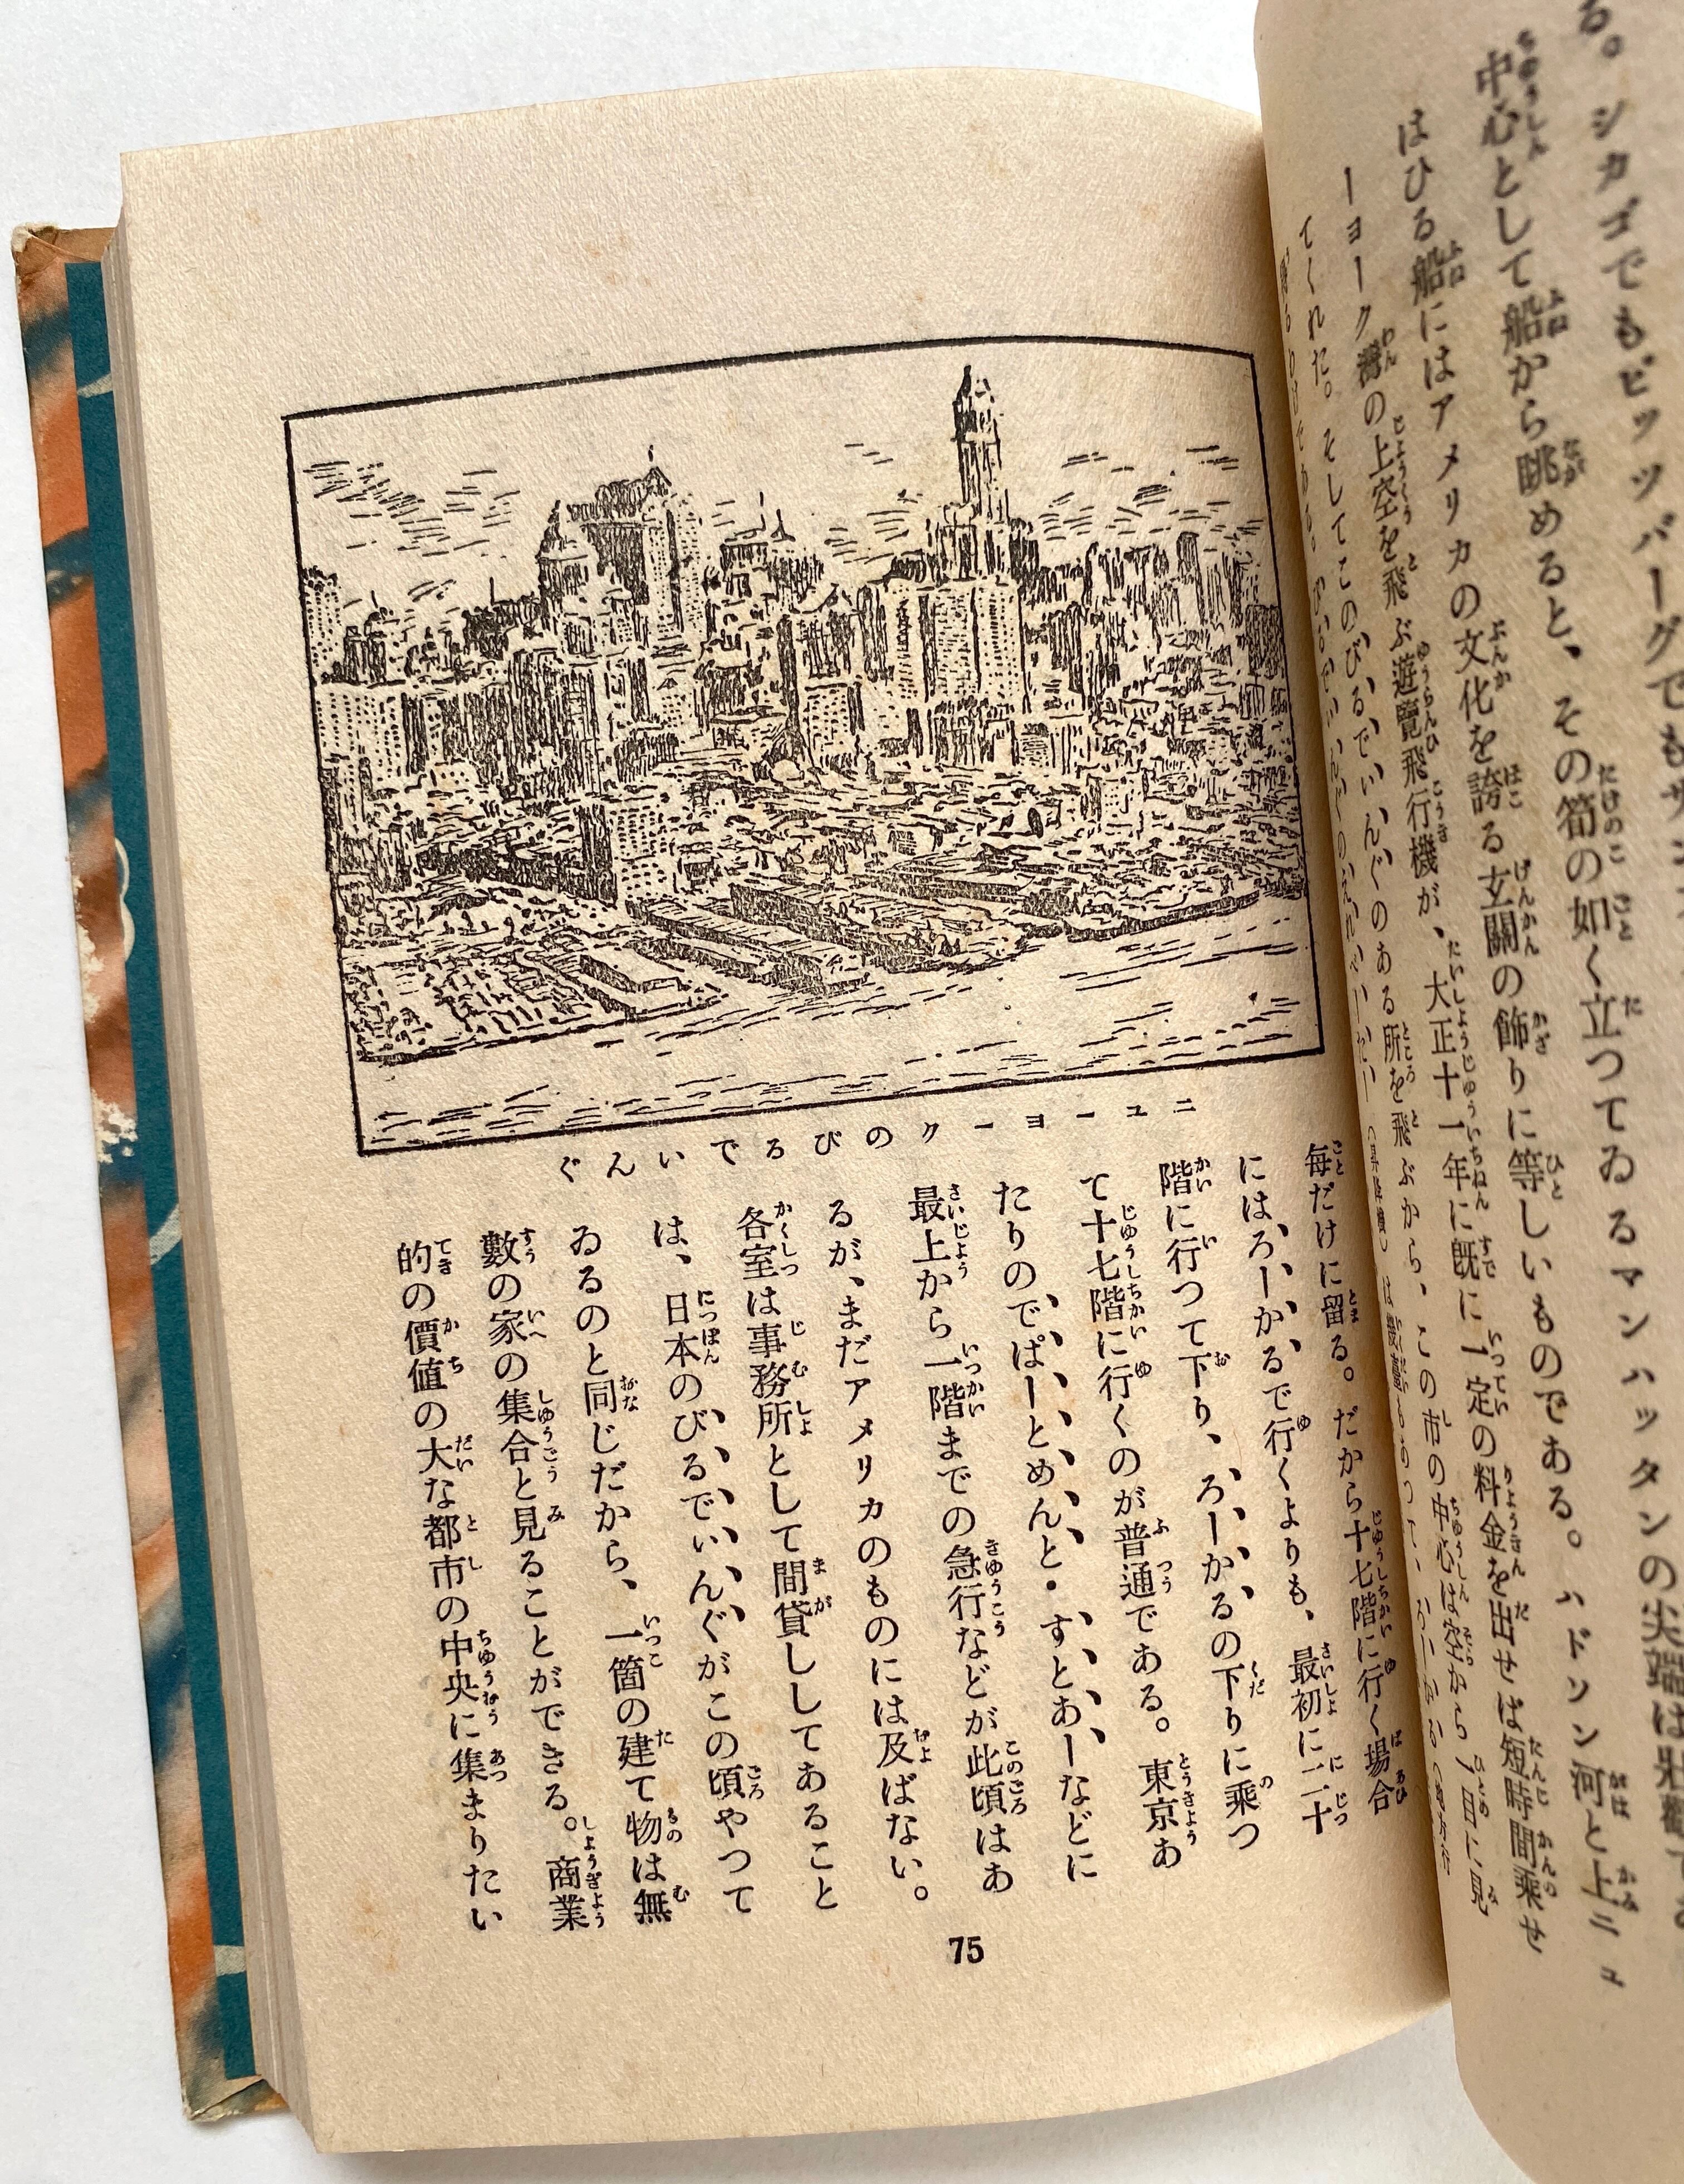 る。シカゴでもピッツバーグでもサ
中心として船から眺めると、その筍の如く立つてゐるマンハッタンの尖端は壯觀であ
はひる船にはアメリカの文化を誇る玄關の飾りに等しいものである。ハドソン河と上ニュ
ーヨーク灣の上空を飛ぶ遊覽飛行機が、大正十一年に既に一定の料金を出せば短時間乘せ
てくれた。そしてこのびるでいんぐのある所を飛ぶから、この市の中心は空から一目に見
ニューヨークのびるでいんぐ
每だけに留る。だから十七階に行く場合
にはろーかるで行くよりも、最初に二十
階に行つて下り、ろーかるの下りに乘つ
て十七階に行くのが普通である。東京あ
たりのでぱーとめんと・すとあーなどに
最上から一階までの急行などが此頃はあ
るが、まだアメリカのものには及ばない。
各室は事務所として間貸ししてあること
は、日本のびるでいんぐがこの頃やつて
ゐるのと同じだから、一箇の建て物は無
數の家の集合と見ることができる。商業
的の價値の大な都市の中央に集まりたい
75